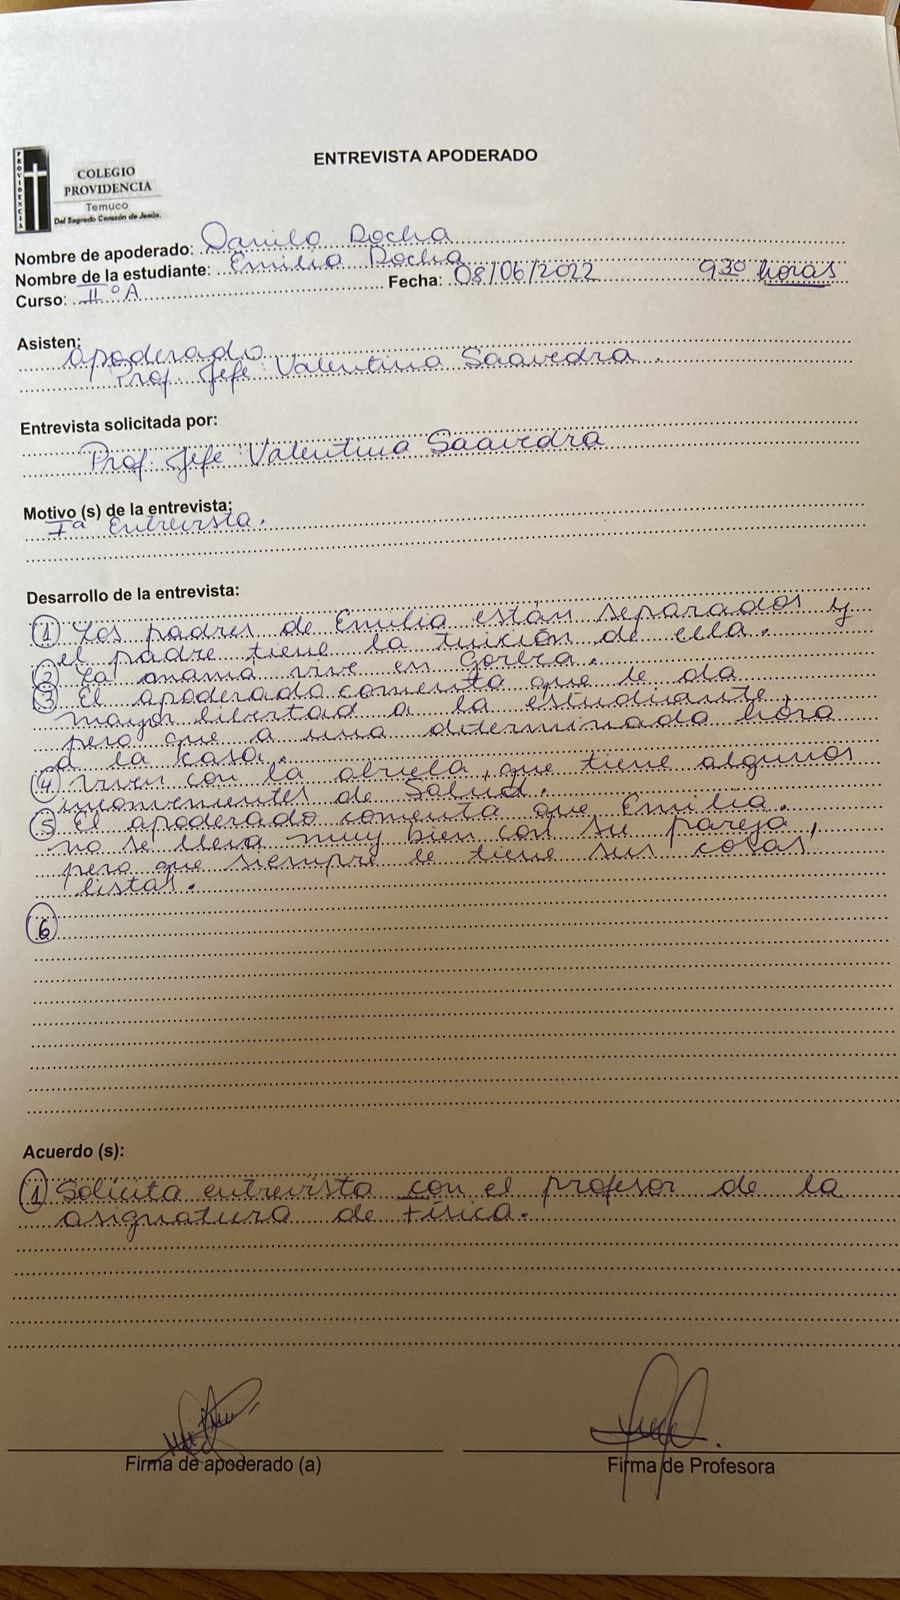 ENTREVISTA APODERADO
PROVIDENCIA
COLEGIO
PROVIDENCIA
Temuco
Del Sagrado Corazón de Jesús.
Nombre de apoderado: Danilo Rocha
Nombre de la estudiante: Emilia Rocha
Curso: II°A Fecha: 08/06/2022 9:30 horas
Asisten:
apoderado
Prof. Jefe Valentina Saavedra.
Entrevista solicitada por:
Prof. Jefe Valentina Saavedra
Motivo (s) de la entrevista:
Iª Entrevista.
Desarrollo de la entrevista:
1 Los padres de Emilia están separados y
el padre tiene la tuición de ella.
2 La mamá vive en Gorbea.
3 El apoderado comenta que le da
mayor libertad a la estudiante,
pero que a una determinada hora
a la casa.
4 Viven con la abuela, que tiene algunos
inconvenientes de Salud.
5 El apoderado comenta que Emilia.
no se lleva muy bien con su pareja,
pero que siempre le tiene sus cosas
listas.
6
Acuerdo (s):
1 Solicita entrevista con el profesor de la
asignatura de Física.
Firma de apoderado (a)
Firma de Profesora